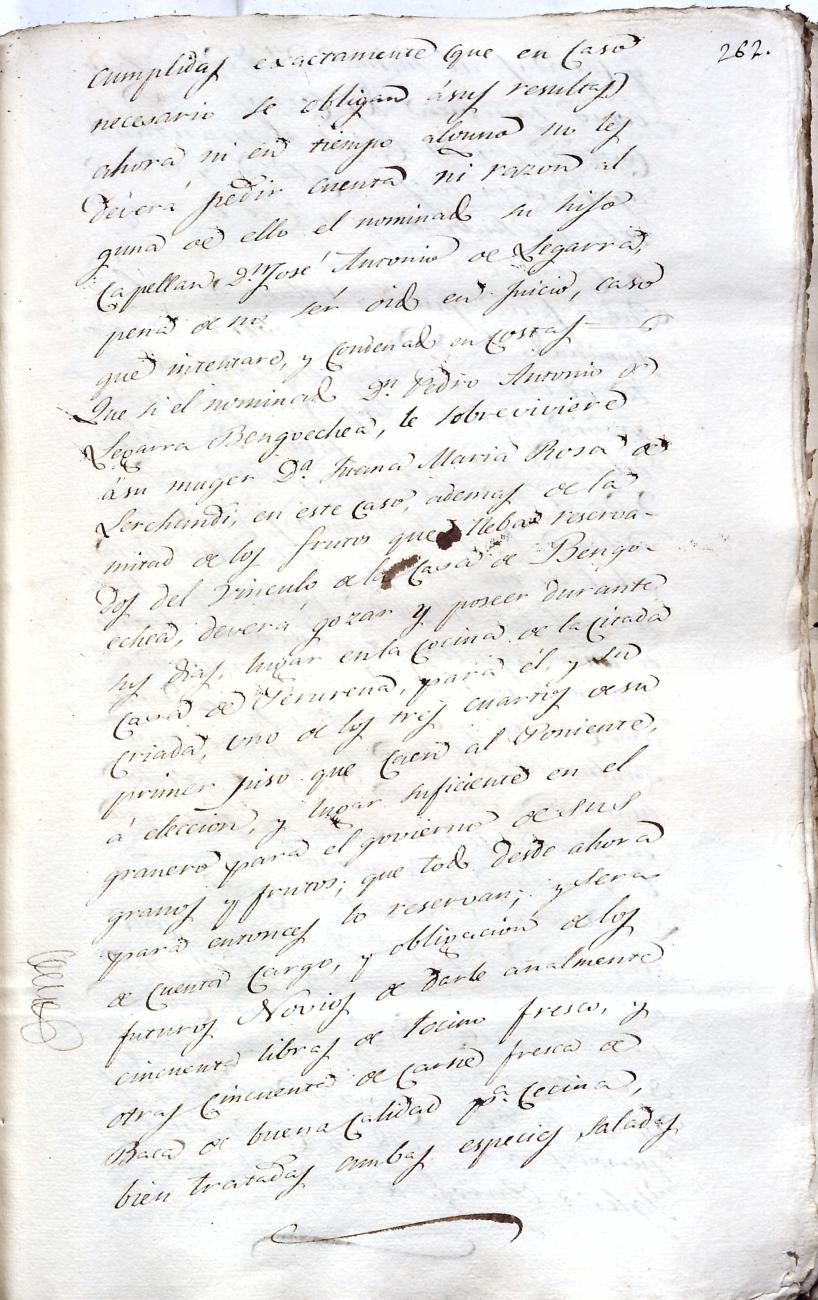 262.
cumplidas exactamente que en caso
necesario se obligan á sus resultas
ahora ni en tiempo alguno no les
deverá pedir cuenta ni razon al
guna de ello el nominado su hijo
Capellan Dn José Antonio de Segarra,
pena de no ser oido en juicio, caso
que intentare, y condenado en costas
Que si el nominado Dn. Pedro Antonio de
Segarra Bengoechea, le sobreviviere
á su muger Da Juana Maria Rosa de
Lerchundi, en este caso, ademas de la
mitad de los frutos que lleba reserva-
dos del Vinculo de la Casa de Bengo-
echea, deverá gozar y poseer durante
sus dias, lugar en la cocina de la citada
Casa de para él, y su
criada, uno de los tres cuartos de su
primer piso que caen al Poniente,
á eleccion, y lugar suficiente en el
granero para el govierno de sus
granos y frutos; que todo desde ahora
para entonces lo reservan; y sera
de cuenta cargo, y obligación de los
futuros Novios de darle anualmente
cincuenta libras de tocino fresco, y
otras cincuenta de carne fresca de
Baca de buena calidad pa. cecina,
bien tratadas ambas especies saladas